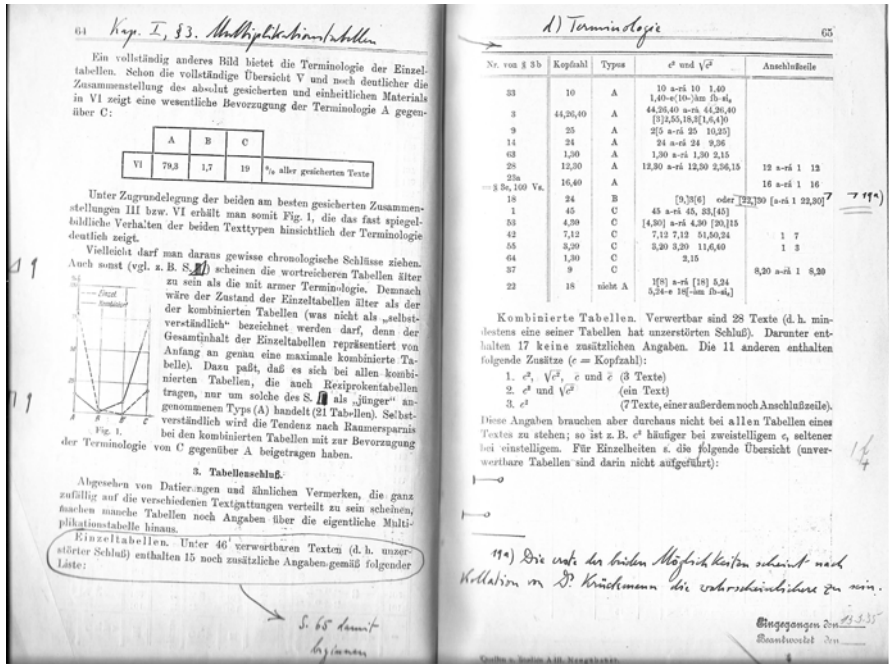 64 Kap. I, §3. Multiplikationstabellen
Ein vollständig anderes Bild bietet die Terminologie der Einzel-
tabellen. Schon die vollständige Übersicht V und noch deutlicher die
Zusammenstellung des absolut gesicherten und einheitlichen Materials
in VI zeigt eine wesentliche Bevorzugung der Terminologie A gegen-
über C:
A B C
VI 79,3 1,7 19 % aller gesicherten Texte
Unter Zugrundelegung der beiden am besten gesicherten Zusammen-
stellungen III bzw. VI erhält man somit Fig. 1, die das fast spiegel-
bildliche Verhalten der beiden Texttypen hinsichtlich der Terminologie
deutlich zeigt.
Vielleicht darf man daraus gewisse chronologische Schlüsse ziehen.
Auch sonst (vgl. z. B. S. ) scheinen die wortreicheren Tabellen älter
zu sein als die mit armer Terminologie. Demnach
wäre der Zustand der Einzeltabellen älter als der
der kombinierten Tabellen (was nicht als „selbst-
verständlich“ bezeichnet werden darf, denn der
Gesamtinhalt der Einzeltabellen repräsentiert von
Anfang an genau eine maximale kombinierte Ta-
belle). Dazu paßt, daß es sich bei allen kombi-
nierten Tabellen, die auch Reziprokentabellen
tragen, nur um solche des S. als „jünger“ an-
genommenen Typs (A) handelt (21 Tabellen). Selbst-
verständlich wird die Tendenz nach Raumersparnis
bei den kombinierten Tabellen mit zur Bevorzugung
der Terminologie von C gegenüber A beigetragen haben.
Einzel
A B C
Fig. 1.
3. Tabellenschluß.
Abgesehen von Datierungen und ähnlichen Vermerken, die ganz
zufällig auf die verschiedenen Textgattungen verteilt zu sein scheinen,
machen manche Tabellen noch Angaben über die eigentliche Multi-
plikationstabelle hinaus.
Einzeltabellen. Unter 46 verwertbaren Texten (d. h. unzer-
störter Schluß) enthalten 15 noch zusätzliche Angaben gemäß folgender
Liste:
S. 65 damit
beginnen
d) Terminologie 65
Nr. von § 3b Kopfzahl Typus c² und √c² Anschlußzeile
33 10 A 10 a-rá 10 1,40
1,40-e(10-)àm íb-si₈
3 44,26,40 A 44,26,40 a-rá 44,26,40
[3]2,55,18,3[1,6,4]0
9 25 A 2[5 a-rá 25 10,25]
14 24 A 24 a-rá 24 9,36
63 1,30 A 1,30 a-rá 1,30 2,15
28 12,30 A 12,30 a-rá 12,30 2,36,15 12 a-rá 1 12
23a
= § 3c, 100 Vs. 16,40 A 16 a-rá 1 16
18 24 B [9,]3[6] oder [22,]30 [a-rá 1 22,30] 19a)
1 45 C 45 a-rá 45, 33,[45]
53 4,30 C [4,30] a-rá 4,30 [20,]15
42 7,12 C 7,12 7,12 51,50,24 1 7
55 3,20 C 3,20 3,20 11,6,40 1 3
64 1,30 C 2,15
37 9 C 8,20 a-rá 1 8,20
22 18 nicht A 1[8] a-rá [18] 5,24
5,24-e 18[-àm íb-si₈]
Kombinierte Tabellen. Verwertbar sind 28 Texte (d. h. min-
destens eine seiner Tabellen hat unzerstörten Schluß). Darunter ent-
halten 17 keine zusätzlichen Angaben. Die 11 anderen enthalten
folgende Zusätze (c = Kopfzahl):
1. c², √c², c und c̄ (3 Texte)
2. c² und √c² (ein Text)
3. c² (7 Texte, einer außerdem noch Anschlußzeile).
Diese Angaben brauchen aber durchaus nicht bei allen Tabellen eines
Textes zu stehen; so ist z. B. c² häufiger bei zweistelligem c, seltener
bei einstelligem. Für Einzelheiten s. die folgende Übersicht (unver-
wertbare Tabellen sind darin nicht aufgeführt):
19a) Die erste der beiden Möglichkeiten scheint nach
Kollation von Dr. Krückmann die wahrscheinlichere zu sein.
Eingegangen den 13.3.35
Beantwortet den
Quellen u. Studien A III. Neugebauer.